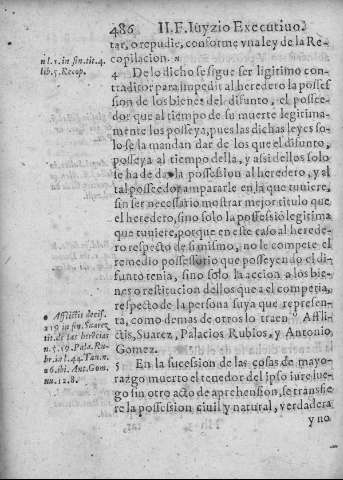 486 II. F. Iuyzio Executiuo.
tar, o repudie, conforme vna ley de la Re-
copilacion. n
n l. 1. in fin. tit. 4.
lib. 5. Recop.
4 De lo dicho se sigue ser ligitimo con-
traditor para impedir al heredero la posses
sion de los bienes del difunto, el possee-
dor que al tiempo de su muerte legitima-
mente los posseya, pues las dichas leyes so-
lo se la mandan dar de los que el difunto,
posseya al tiempo della, y assi dellos solo
le ha de dar la possession al heredero, y al
tal posseedor ampararle en la que tuuiere,
sin ser necessario mostrar mejor titulo que
el heredero, sino solo la possessiõ legitima
que tuuiere, porque en este caso al herede-
ro respecto de si mismo, no le compete el
remedio possessorio que posseyendo el di-
funto tenia, sino solo la accion a los bie-
nes o restitucion dellos que a el competia,
respecto de la persona suya que represen-
ta, como demas de otros lo traen o Afflic-
tis, Suarez, Palacios Rubios, y Antonio
Gomez.
o Afflictis decis.
219 in fin. Suarez
tit. de las herẽcias
n. 5. 19. Pala. Ru-
br. in l. 44. Tau. n.
26. ibi. Ant. Gom.
nu. 12. 8.
5 En la sucesion de las cosas de mayo-
razgo muerto el tenedor del ipso iure lue-
go sin otro acto de aprehension, se transfie
re la possession ciuil y natural, verdadera
y no